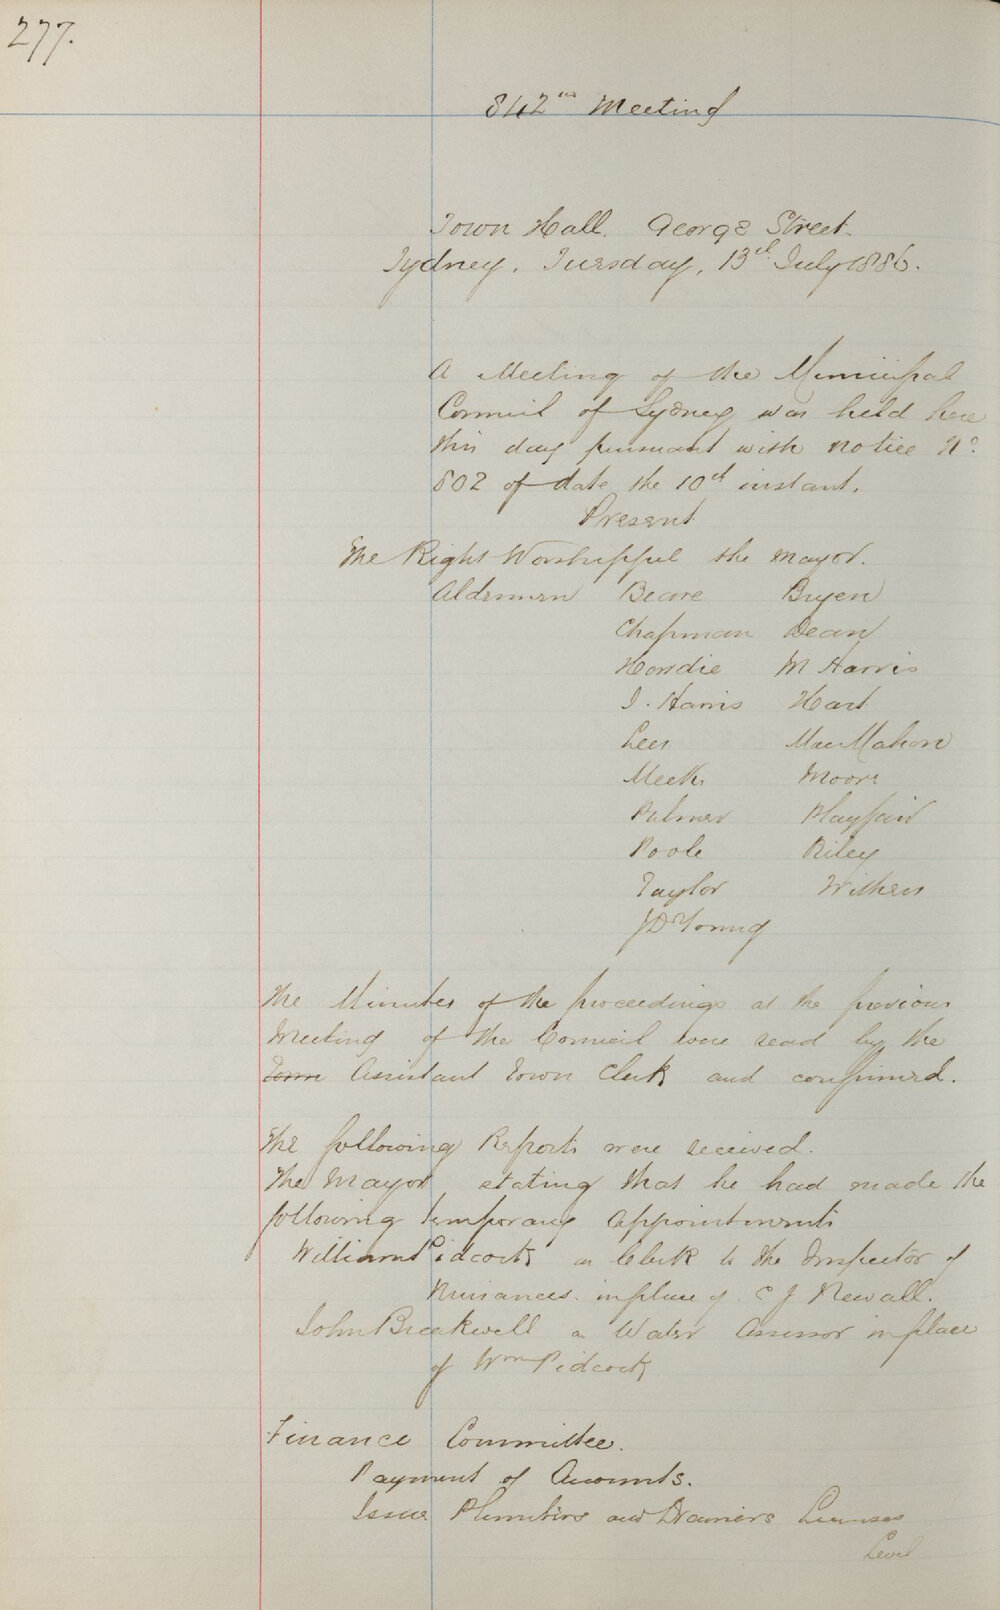 277.
842nd Meeting
Town Hall. George Street.
Sydney, Tuesday, 13th July 1886.
A Meeting of the Municipal
Council of Sydney was held here
this day pursuant with notice No.
802 of date the 10th instant.
Present
The Right Worshipful the Mayor.
Aldermen Beare Burjen
Chapman Dean
Hordie M Harris
J. Harris Hart
Lees MacMahon
Meeks Moore
Palmer Playfair
Poole Riley
Taylor Withers
JD Young
The Minutes of the proceedings at the previous
Meeting of the Council were read by the
Town Assistant Town Clerk and confirmed.
The following Reports were received.
The Mayor stating that he had made the
following temporary appointments
William Pidcock as Clerk to the Inspector of
Nuisances. in place of C J Newall.
John Breakwell as Water Assessor in place
of Wm Pidcock
Finance Committee.
Payment of Accounts.
Issue Plumbers and Drainers Licenses